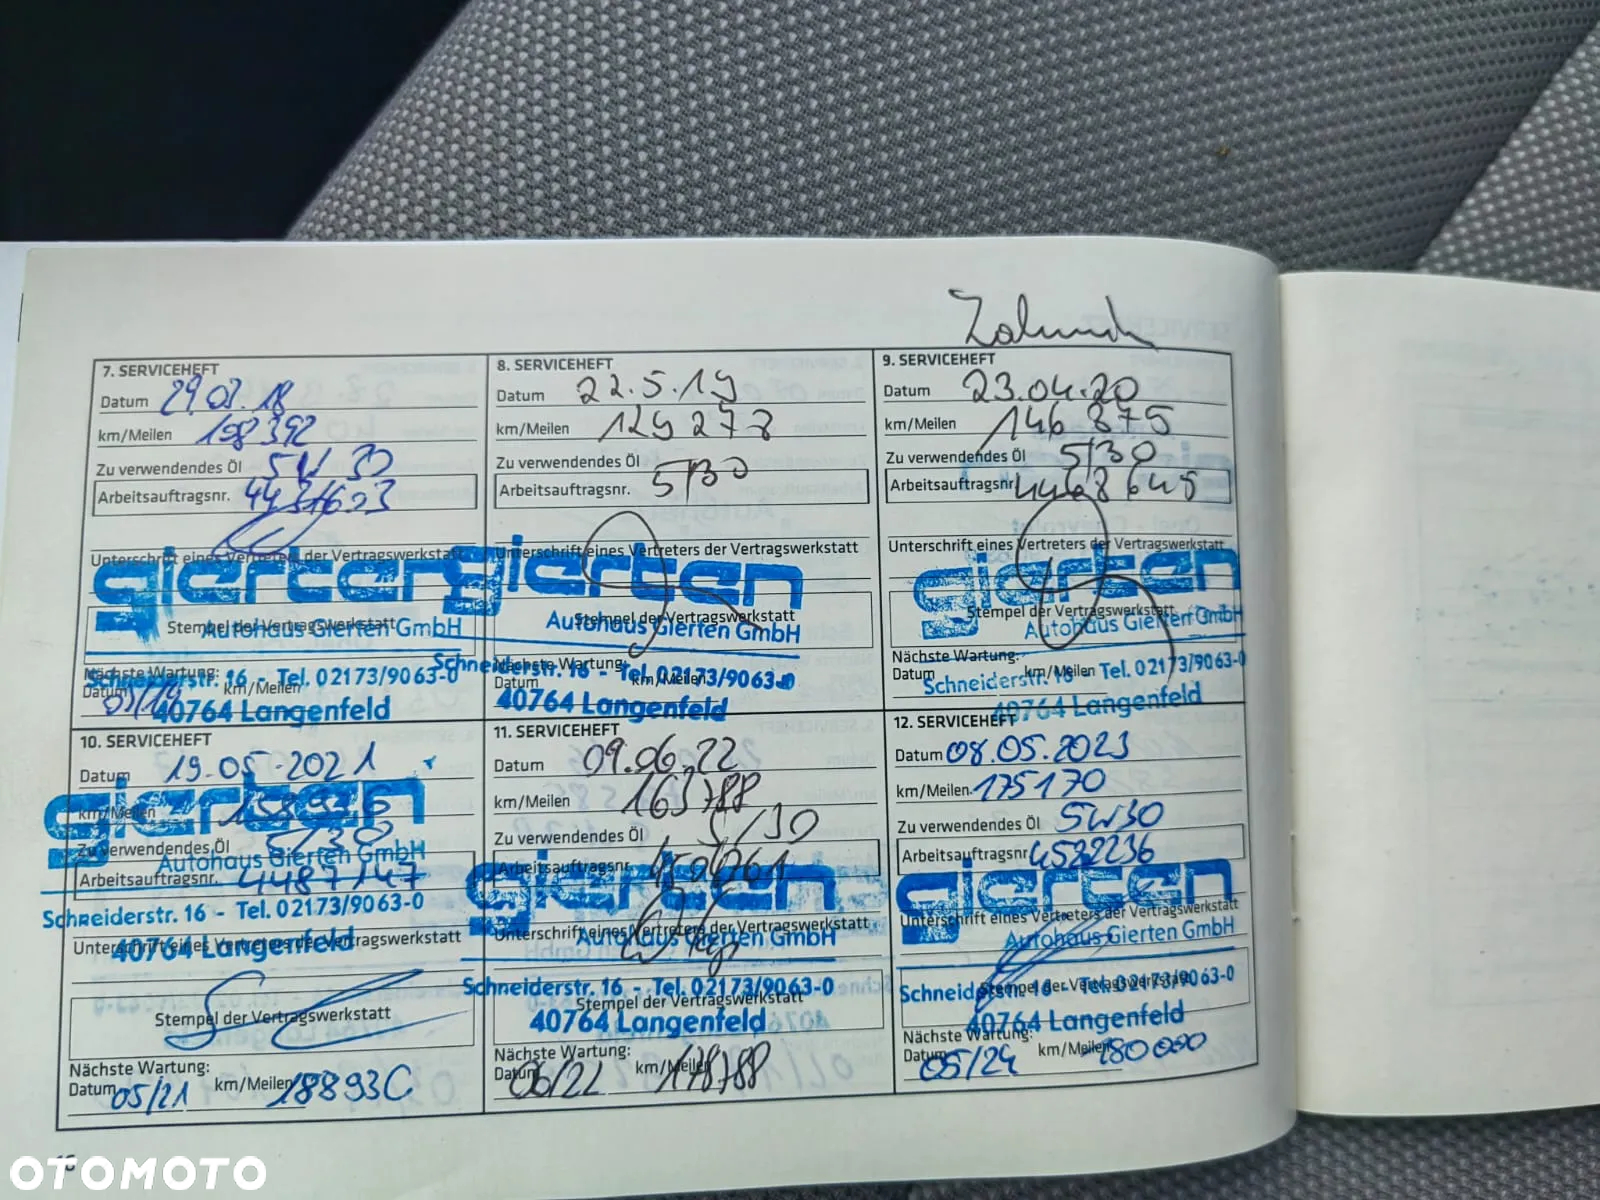 Zahnrh
7. SERVICEHEFT
Datum 29.03.18
km/Meilen 108392
Zu verwendendes Öl 5W30
Arbeitsauftragsnr.
Unterschrift eines Vertreters der Vertragswerkstatt
gierten
Stempel der Vertragswerkstatt
Autohaus Gierten GmbH
Nächste Wartung:
Schneiderstr. 16 - Tel. 02173/9063-0
Datum 03/19 km/Meilen
40764 Langenfeld
8. SERVICEHEFT
Datum 22.5.19
km/Meilen 129278
Zu verwendendes Öl
Arbeitsauftragsnr. 5/30
Unterschrift eines Vertreters der Vertragswerkstatt
gierten
Stempel der Vertragswerkstatt
Autohaus Gierten GmbH
Nächste Wartung:
Schneiderstr. 16 - Tel. 02173/9063-0
Datum km/Meilen
40764 Langenfeld
9. SERVICEHEFT
Datum 23.04.20
km/Meilen 146 875
Zu verwendendes Öl 5/30
Arbeitsauftragsnr. 4468645
Unterschrift eines Vertreters der Vertragswerkstatt
gierten
Stempel der Vertragswerkstatt
Autohaus Gierten GmbH
Nächste Wartung:
Datum km/Meilen
Schneiderstr. 16 - Tel. 02173/9063-0
40764 Langenfeld
10. SERVICEHEFT
Datum 19.05.2021
km/Meilen 158936
gierten
Zu verwendendes Öl 5/30
Autohaus Gierten GmbH
Arbeitsauftragsnr. 4487147
Schneiderstr. 16 - Tel. 02173/9063-0
Unterschrift eines Vertreters der Vertragswerkstatt
40764 Langenfeld
Stempel der Vertragswerkstatt
Nächste Wartung:
Datum 05/21 km/Meilen 188930
11. SERVICEHEFT
Datum 09.06.22
km/Meilen 163788
Zu verwendendes Öl 5/30
Arbeitsauftragsnr.
gierten
Unterschrift eines Vertreters der Vertragswerkstatt
Autohaus Gierten GmbH
Schneiderstr. 16 - Tel. 02173/9063-0
Stempel der Vertragswerkstatt
40764 Langenfeld
Nächste Wartung:
Datum 06/22 km/Meilen 178788
12. SERVICEHEFT
Datum 08.05.2023
km/Meilen 175170
Zu verwendendes Öl 5W30
Arbeitsauftragsnr. 4522236
gierten
Unterschrift eines Vertreters der Vertragswerkstatt
Autohaus Gierten GmbH
Schneiderstr. 16 - Tel. 02173/9063-0
Stempel der Vertragswerkstatt
40764 Langenfeld
Nächste Wartung:
Datum 05/24 km/Meilen 180000
16
OTOMOTO